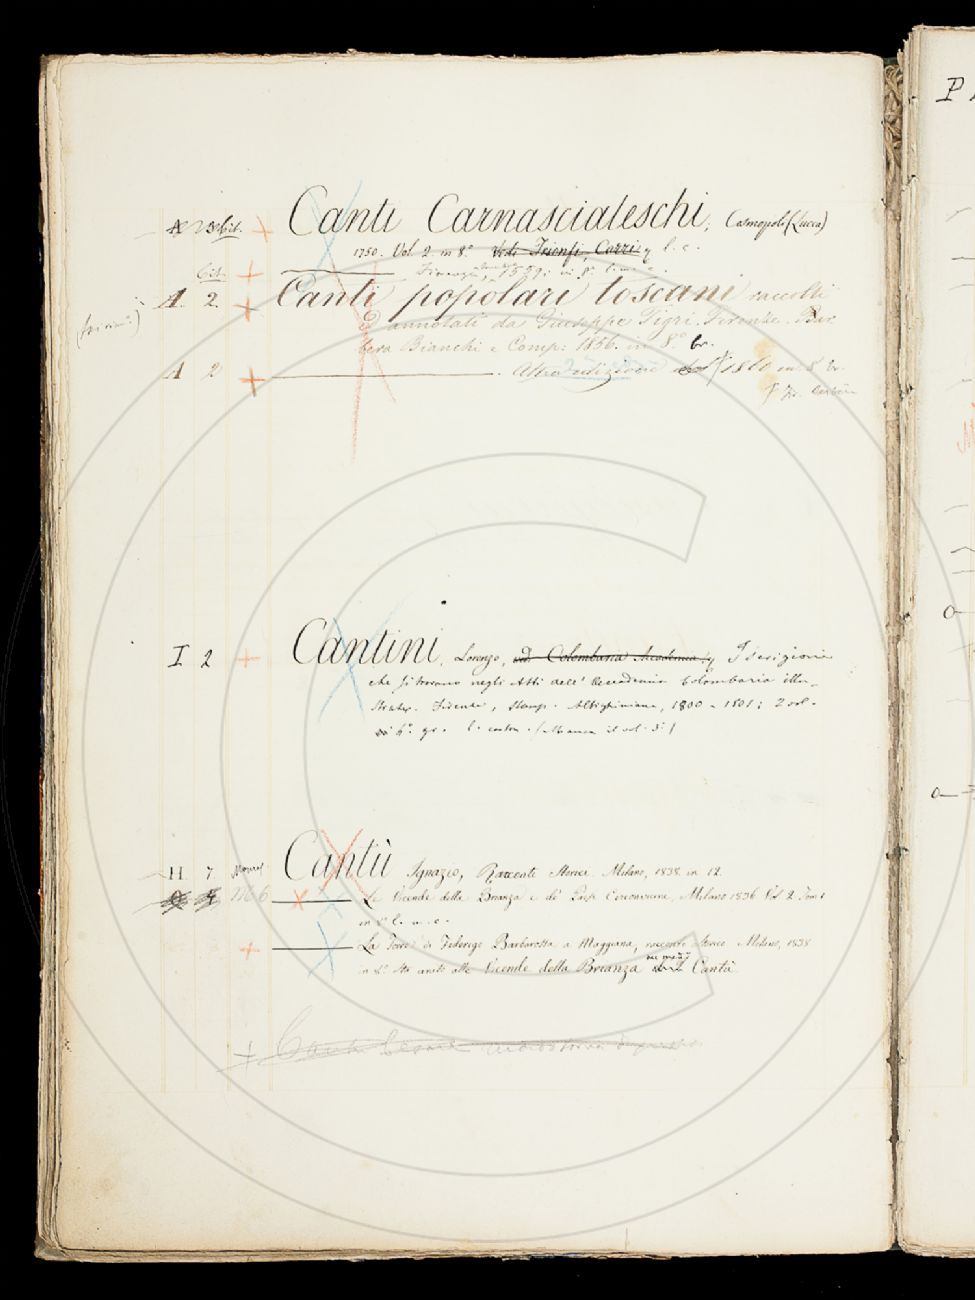 Cit. Canti Carnascialeschi; Cosmopoli (Lucca)
1750. Vol. 2 in 8.° Vedi Trionfi, Carri l. c.
Cit. Firenze 1559: in 8.°
A. 2. Canti popolari toscani raccolti
e annotati da Giuseppe Tigri. Firenze. Bar
bera Bianchi e Comp: 1856. in 8.° br.
A 2 Altra edizione 1860 in 8.° br.
I 2 Cantini, Lorenzo, Colombaria Accademia Iscrizioni
che si trovano negli Atti dell' Accademia Colombaria illu-
strate. Firenze, stamp. Albizziniana, 1800-1801; 2 vol.
in 4.° gr. manca il vol. 3.
H. 7 Cantù Ignazio, Racconti Storici. Milano, 1838. in 12.
Le Vicende della Brianza e de' Paesi Circonvicini, Milano 1836. Vol. 2. Tomi
in 8.°
La Torre di Federigo Barbarossa a Maggiana, racconto storico. Milano, 1838
in 8.° Sta unito alle Vicende della Brianza del medº Cantù.
Cantù Cesare
P